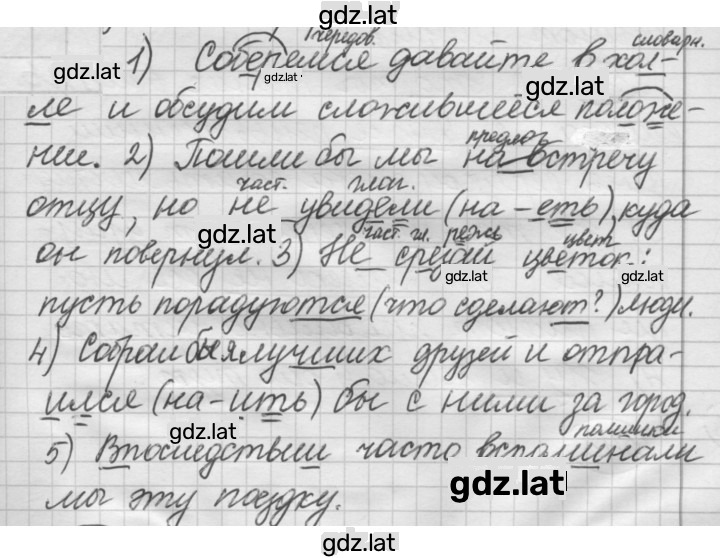 gdz.lat
чередов. словарн.
1) Соберемся давайте в хол-
ле и обсудим сложившееся положе-
предлог
ние. 2) Пошли бы мы на встречу
част. глаг.
отцу, но не увидели (на -еть), куда
част. гл. режь цвет
он повернул. 3) Не срезай цветок:
пусть порадуются (что сделают?) люди.
4) Собрал бы я лучших друзей и отпра-
ился (на -ить) бы с ними за город.
помнить
5) Впоследствии часто вспоминали
мы эту поездку.
gdz.lat
gdz.lat
gdz.lat
gdz.lat
gdz.lat
gdz.lat
gdz.lat
gdz.lat
gdz.lat
gdz.lat